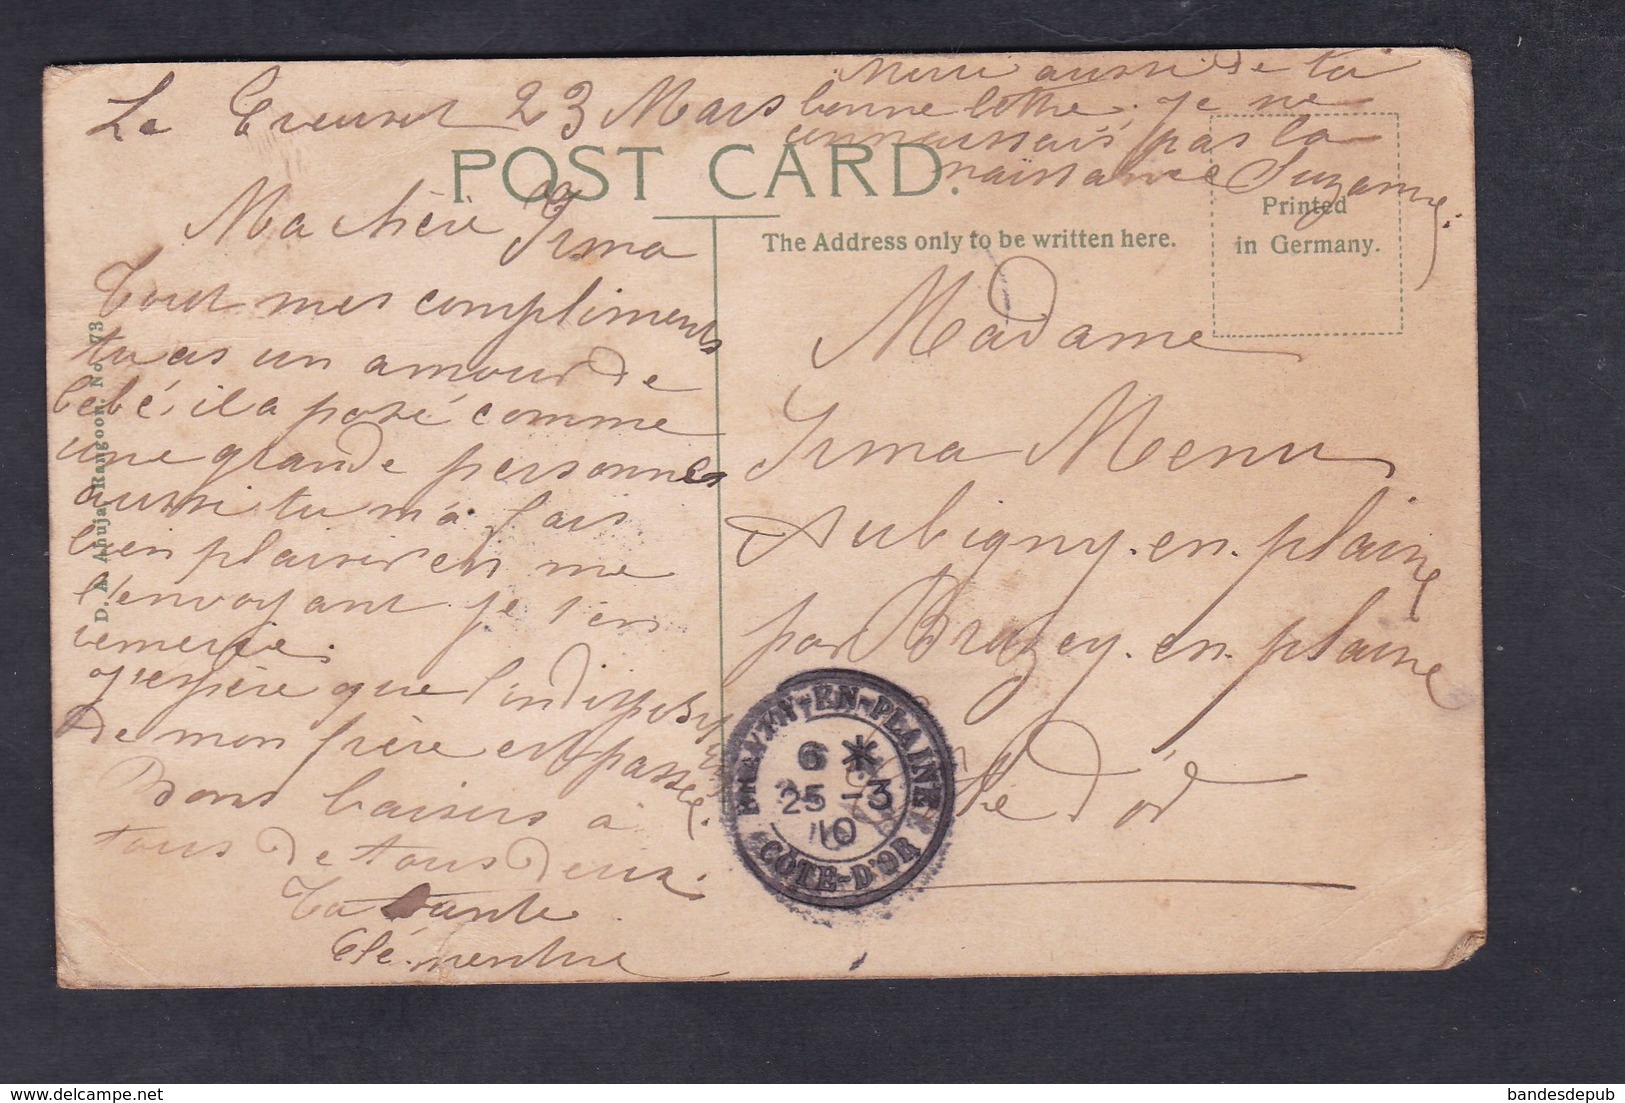 Le Creusot 23 Mars
Merci aussi de ta
bonne lettre, je ne
connaissais pas la
naissance Suzanne.
POST CARD.
Ma chère Irma
Tout mes compliments
tu as un amour de
bébé, il a posé comme
une grande personnes
aussi tu m'a fais
bien plaisir en me
l'envoyant je t'en
remercie.
J'espère que l'indisposition
de mon frère est passée.
Bons baisers à
tous de tous deux.
Ta Tante
Clémentine
D. A. Ahuja, Rangoon. No. 73
The Address only to be written here.
Printed
in Germany.
Madame
Irma Menu
Aubigny-en-plaine
par Brazey-en-plaine
Cte d'or
BRAZEY-EN-PLAINE
6 *
25 - 3
10
CÔTE-D'OR
bandesdepub